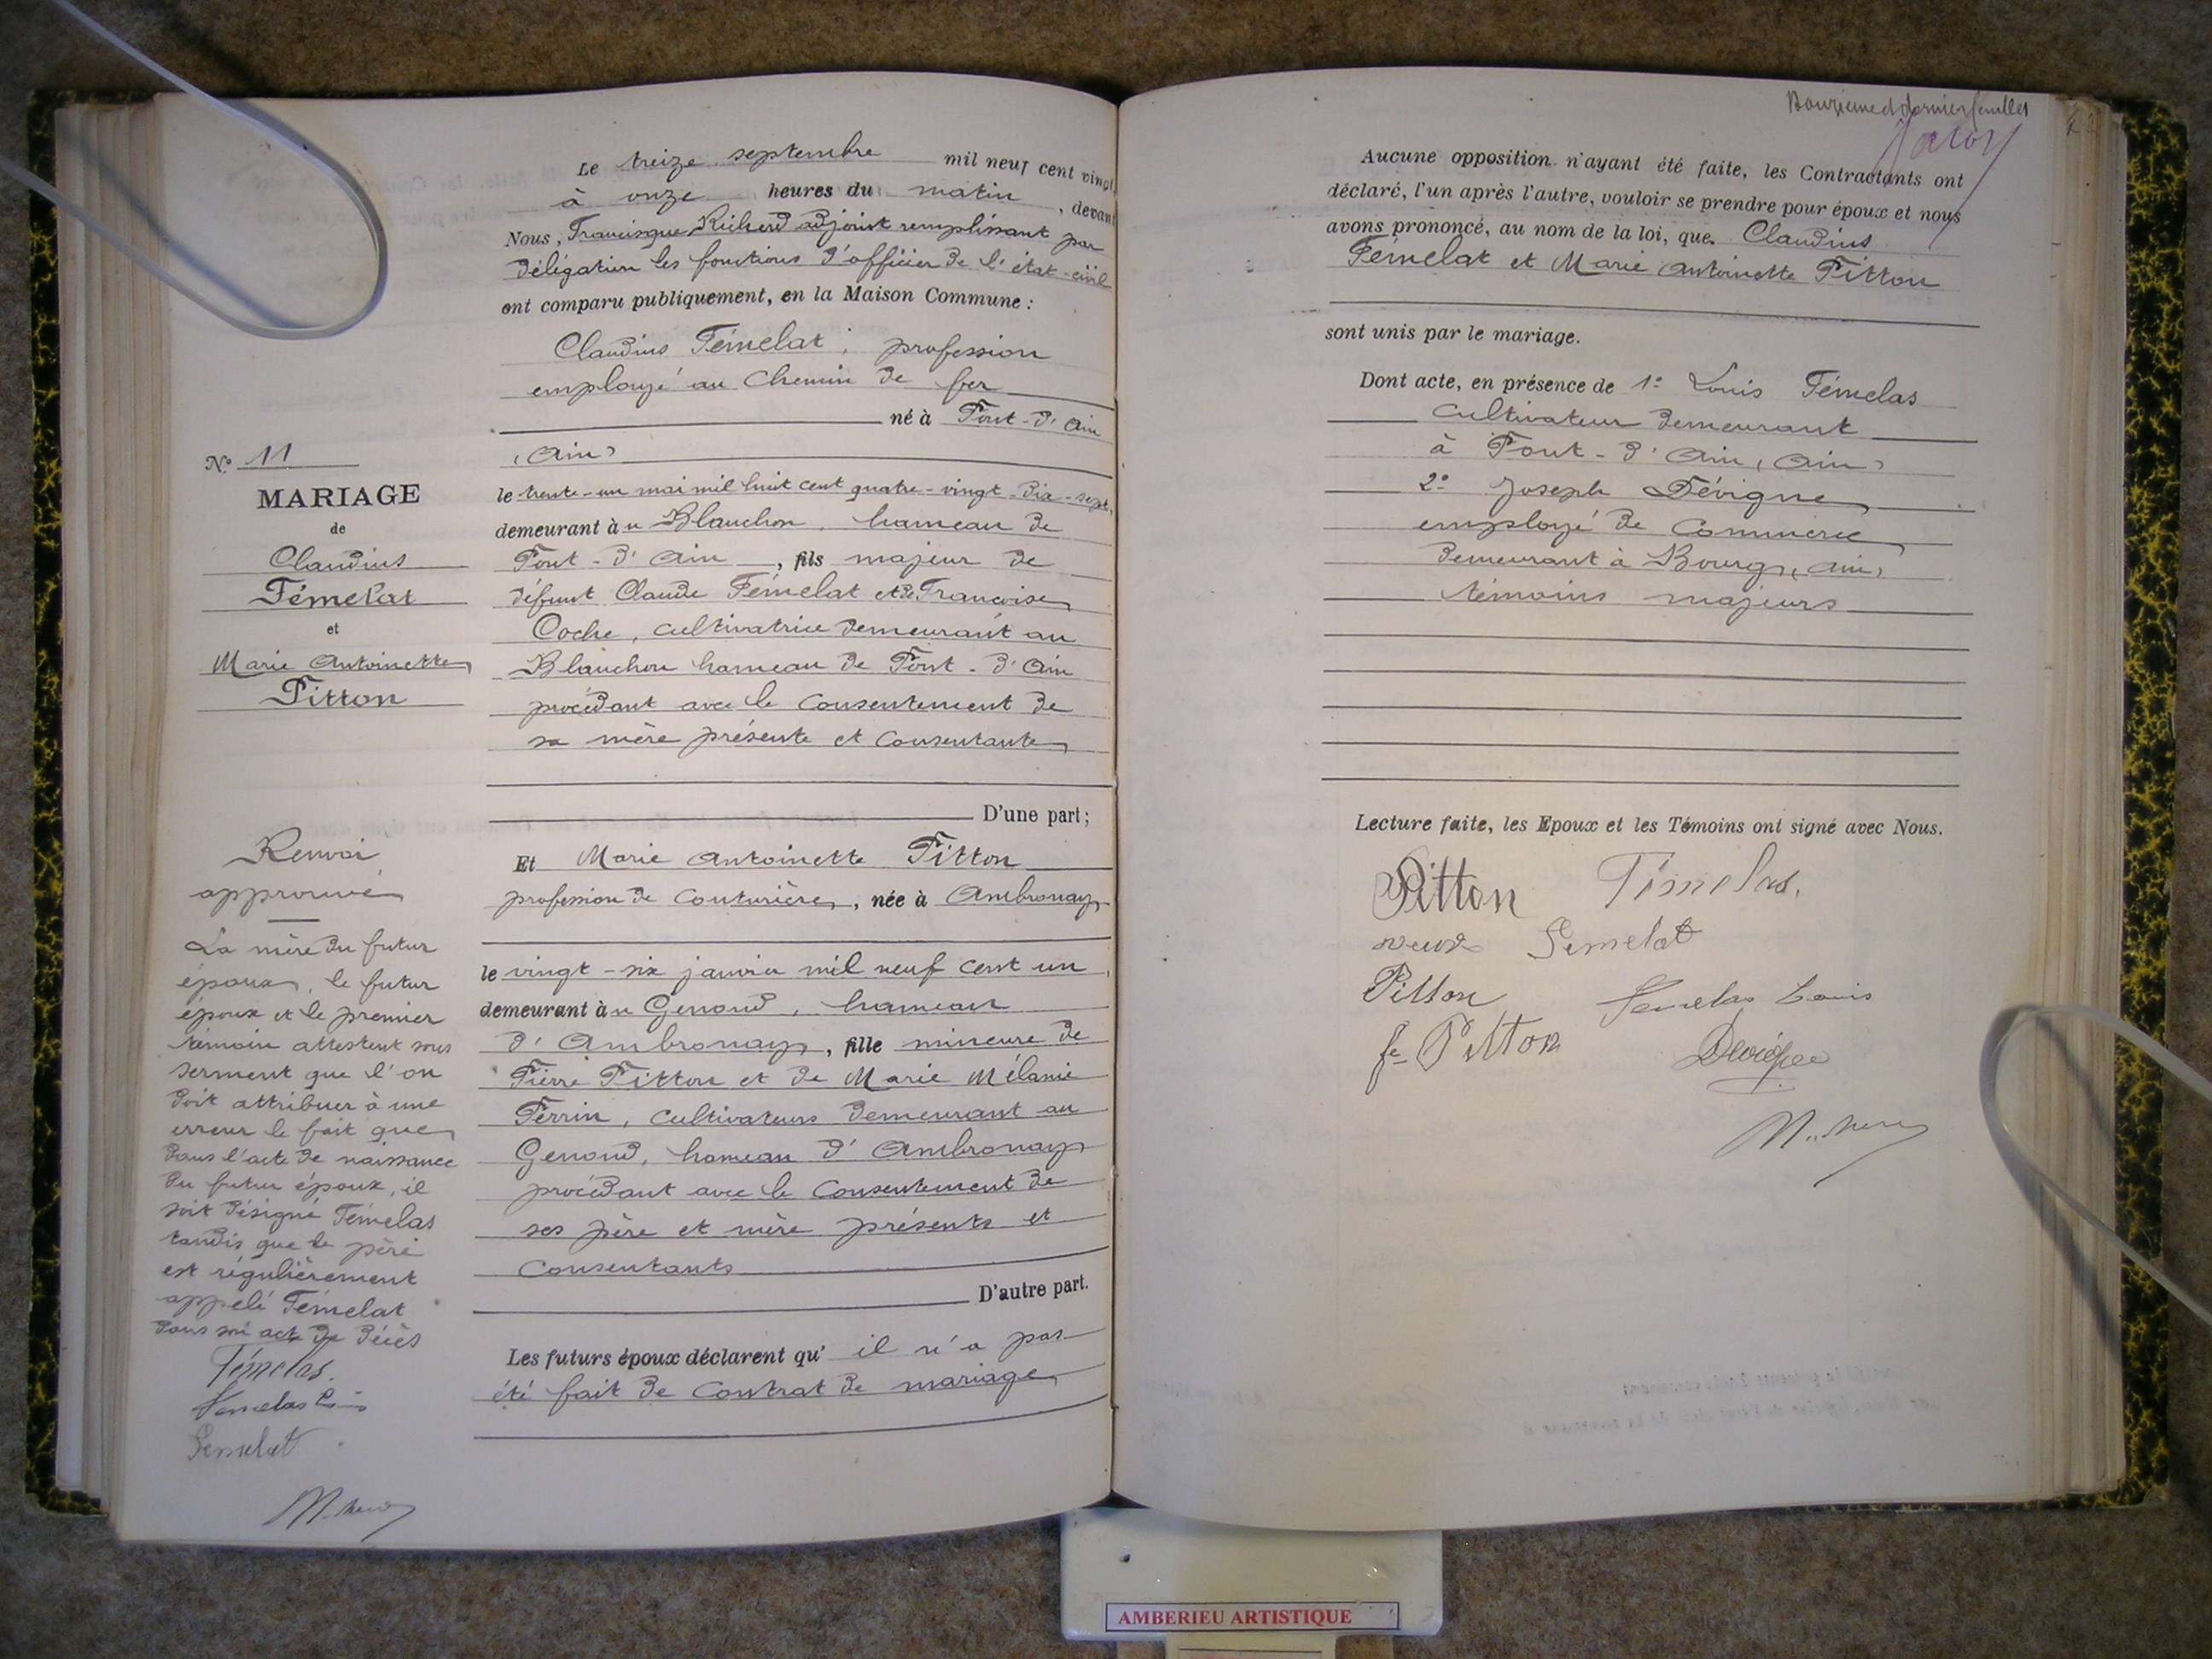 N° 11
MARIAGE
de
Claudius
Fémelat
et
Marie Antoinette
Pitton
Renvoi
approuvé
La mère du futur
époux, le futur
époux et le premier
témoin attestent sous
serment que l'on
doit attribuer à une
erreur le fait que
dans l'acte de naissance
du futur époux, il
soit désigné Fémelas
tandis que le père
est régulièrement
appelé Fémelat
dans son acte de décès
Fémelas.
Femelas Louis
Femelat
Le treize septembre mil neuf cent vingt
à onze heures du matin, devant
Nous, Francisque Richerd adjoint remplissant par
délégation les fonctions d'officier de l'état-civil
ont comparu publiquement, en la Maison Commune :
Claudius Fémelat, profession
employé au Chemin de fer
né à Pont-d'Ain
(Ain)
le trente-un mai mil huit cent quatre-vingt-dix-sept,
demeurant au Blanchon, hameau de
Pont-d'Ain, fils majeur de
défunt Claude Fémelat et de Françoise
Coche, cultivatrice demeurant au
Blanchon hameau de Pont-d'Ain
procédant avec le consentement de
sa mère présente et consentante
D'une part;
Et Marie Antoinette Pitton
profession de Couturière, née à Ambronay
le vingt-six janvier mil neuf cent un,
demeurant au Genoud, hameau
d'Ambronay, fille mineure de
Pierre Pitton et de Marie Mélanie
Perrin, cultivateurs demeurant au
Genoud, hameau d'Ambronay
procédant avec le consentement de
ses père et mère présents et
consentants
D'autre part.
Les futurs époux déclarent qu'il n'a pas
été fait de Contrat de mariage
Douzième et dernier feuillet
Aucune opposition n'ayant été faite, les Contractants ont
déclaré, l'un après l'autre, vouloir se prendre pour époux et nous
avons prononcé, au nom de la loi, que Claudius
Fémelat et Marie Antoinette Pitton
sont unis par le mariage.
Dont acte, en présence de 1° Louis Fémelas
cultivateur demeurant
à Pont-d'Ain (Ain)
2° Joseph Dévigne
employé de Commerce
demeurant à Bourg (Ain)
témoins majeurs
Lecture faite, les Epoux et les Témoins ont signé avec Nous.
Pitton Fémelas.
veuve Femelat
Pitton Femelas Louis
fe Pitton Devigne
AMBERIEU ARTISTIQUE